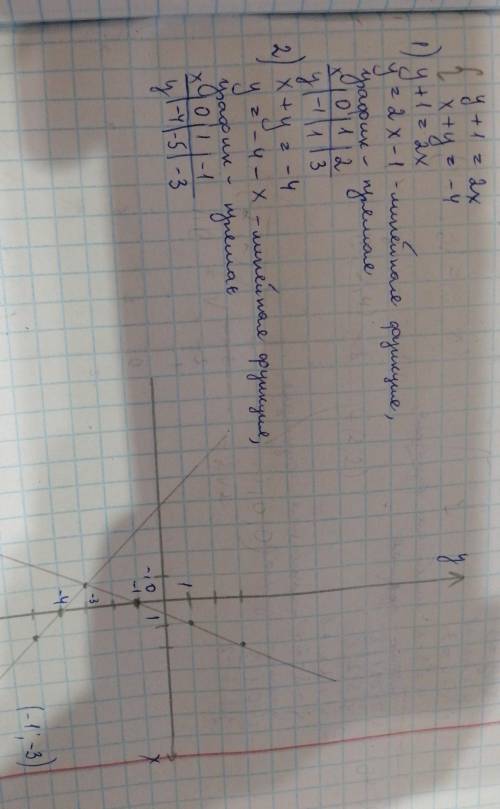 { y + 1 = 2x
x + y = -4
1) y + 1 = 2x
y = 2x - 1 - линейная функция,
график - прямая.
x | 0 | 1 | 2
y | -1 | 1 | 3
2) x + y = -4
y = -4 - x - линейная функция,
график - прямая
x | 0 | 1 | -1
y | -4 | -5 | -3
y
1
-1 0 1 x
-1
-3
-4
(-1; -3)